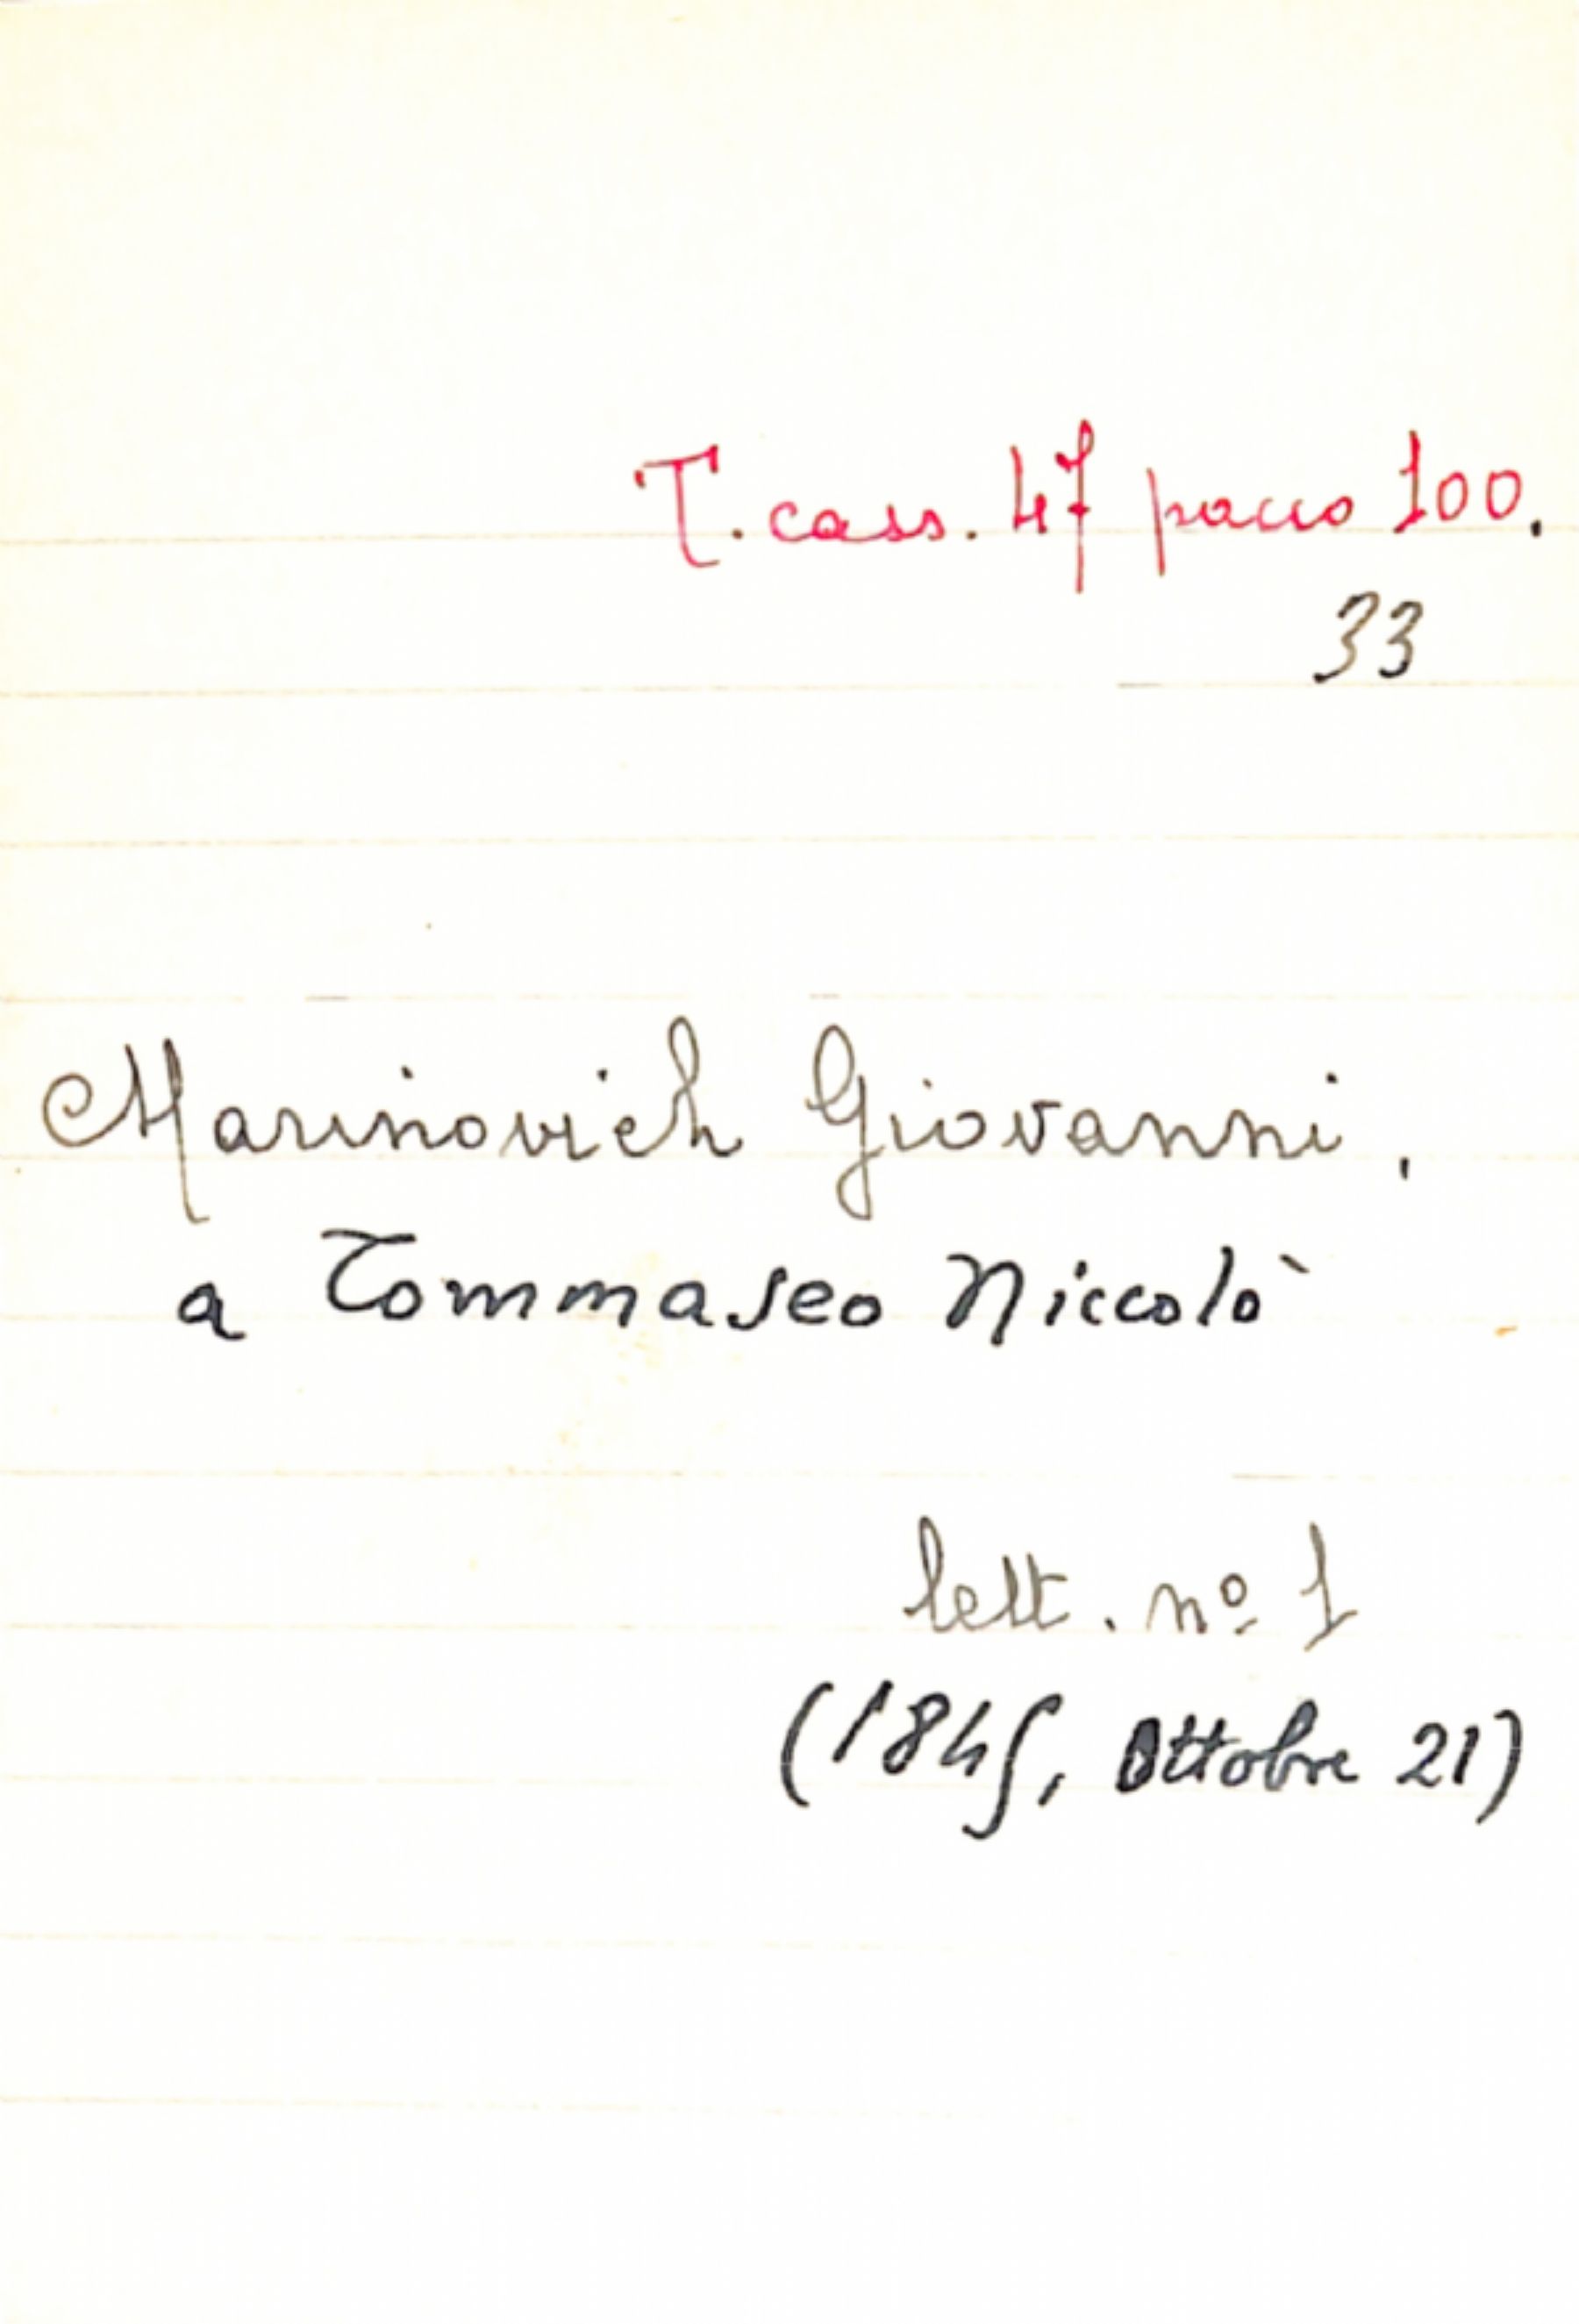 T. cass. 47 pacco 100.
33
Marinovich Giovanni,
a Tommaseo Niccolò
lett. nº 1
(1845, Ottobre 21)